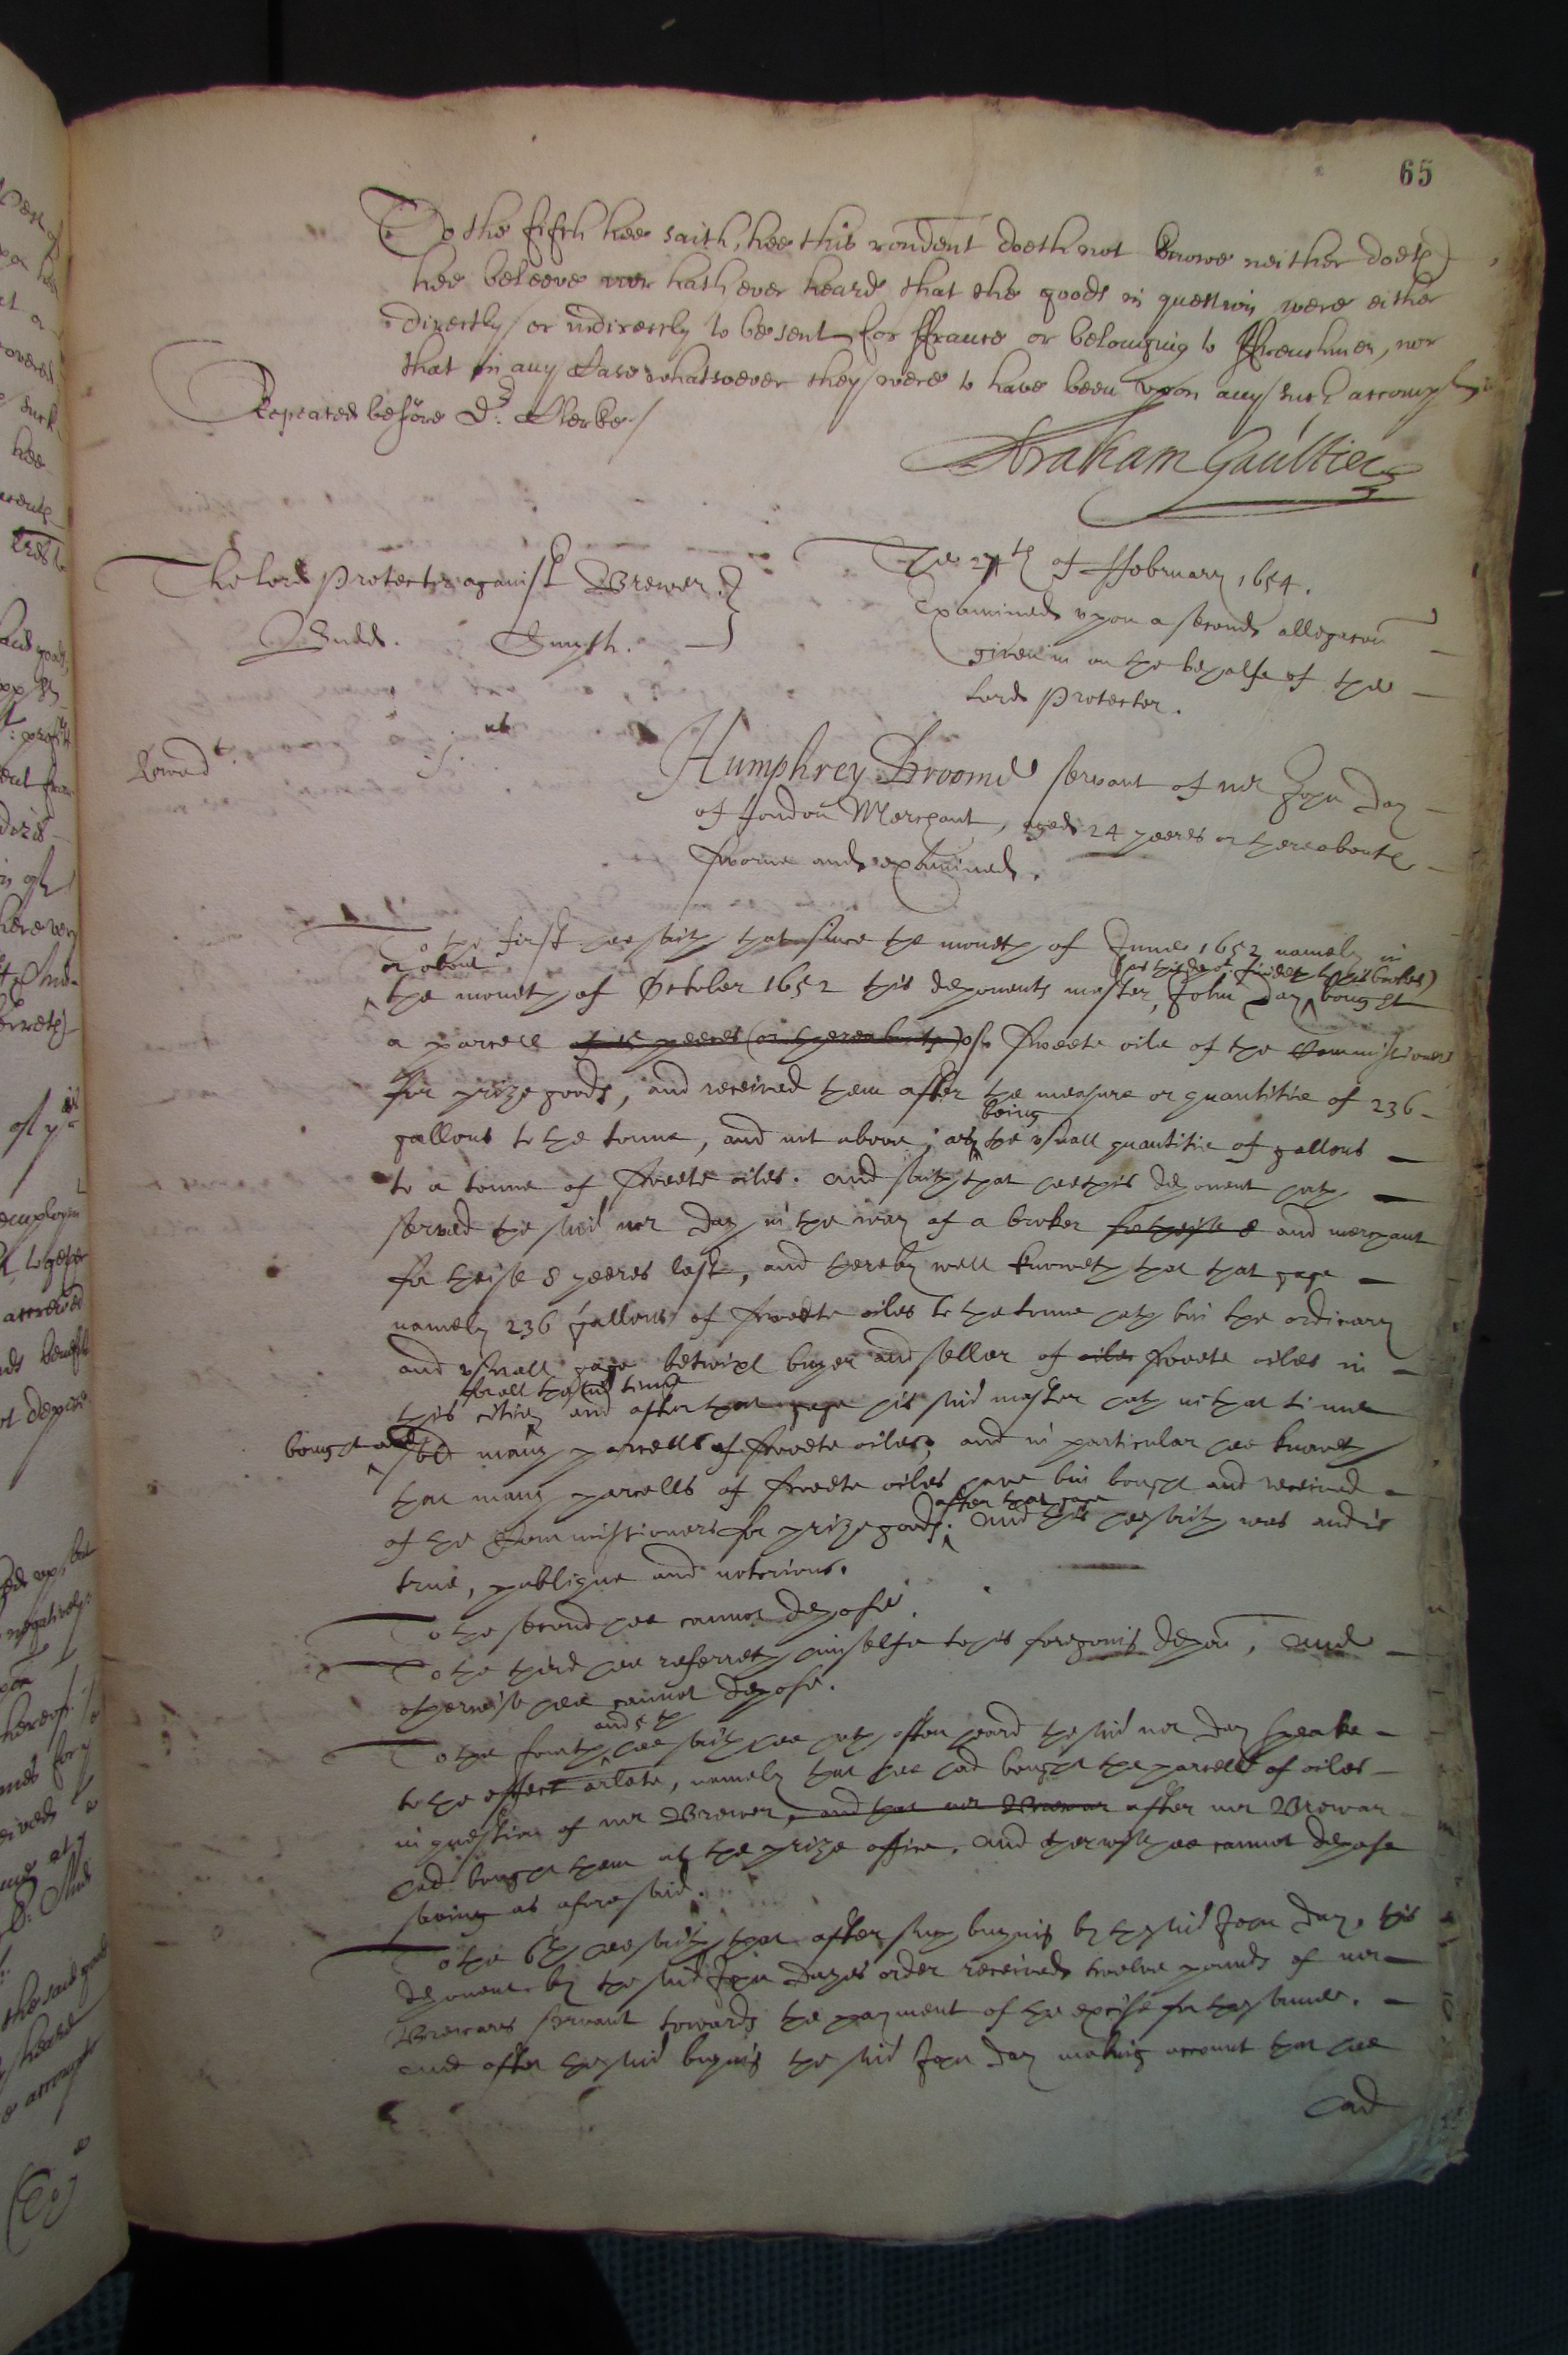 65
To the fifth hee saith, hee this rondent doeth not knowe neither doeth
hee beleeve nor hath ever heard that the goods in question were either
directly or indirectly to be sent for ffrance or belonging to ffrenchmen, nor
that in any Case whatsoever they were to have been upon any such accompt
Repeated before Dr. Clerke./
Abraham Gaultier
The 27th of ffebruary 1654.
The Lord Protector against Brewer.
Examined upon a second allegaton
Budd. Smyth.
given in on the behalfe of the
Lord Protector.
Rowe dt. j. us
Humphrey Broome servant of mr John Day
of London Merchant, aged 24 yeeres or thereabouts
sworne and examined.
To the first hee saith that since the moneth of June 1652 namely in
or about
the moneth of October 1652 this deponents master, John Day bought
(as this depot. findeth by his bookes)
a parcell of 15 peeces (or thereabouts) of sweete oile of the Commissioners
for prize goods, and received them after the measure or quantitie of 236
gallons to the tonne, and not above, as being the usuall quantitie of gallons
to a tonne of sweete oiles. And saith that hee this deponent hath
served the said mr Day in the way of a broker and merchant
for theise 8 yeeres last, and thereby well knoweth that that gage
namely 236 gallons of sweete oiles to the tonne hath bin the ordinary
and usuall gage betwixt buyer and seller of oiles sweete oiles in
for all the said time
this citie, and after that gage his said master hath in that time
bought and sold many parcells of sweete oiles, and in particular hee knoweth
that many parcells of sweete oiles have bin bought and received
of the Commissioners for prize goods after that gage. And this hee saith was and is
true, publique and notorious.
To the second hee cannot depose.
To the third hee referreth himselfe to his foregoing depon, And
otherwise hee cannot depose.
To the fourth and 5th hee saith hee hath often heard the said mr Day speake
to the effect arlate, namely that hee had bought the parcell of oiles
in question of mr Brewer, and that mr Brewer after mr Brewar
had bought them at the prize office. And otherwise hee cannot depose
saving as aforesaid.
To the 6th hee saith that after such buying by the said John Day, this
deponent by the said John Dayes order received twelve pounds of mr
Brewers servant towards the payment of the excise for the same.
And after the said buying the said John Day making account that hee
had